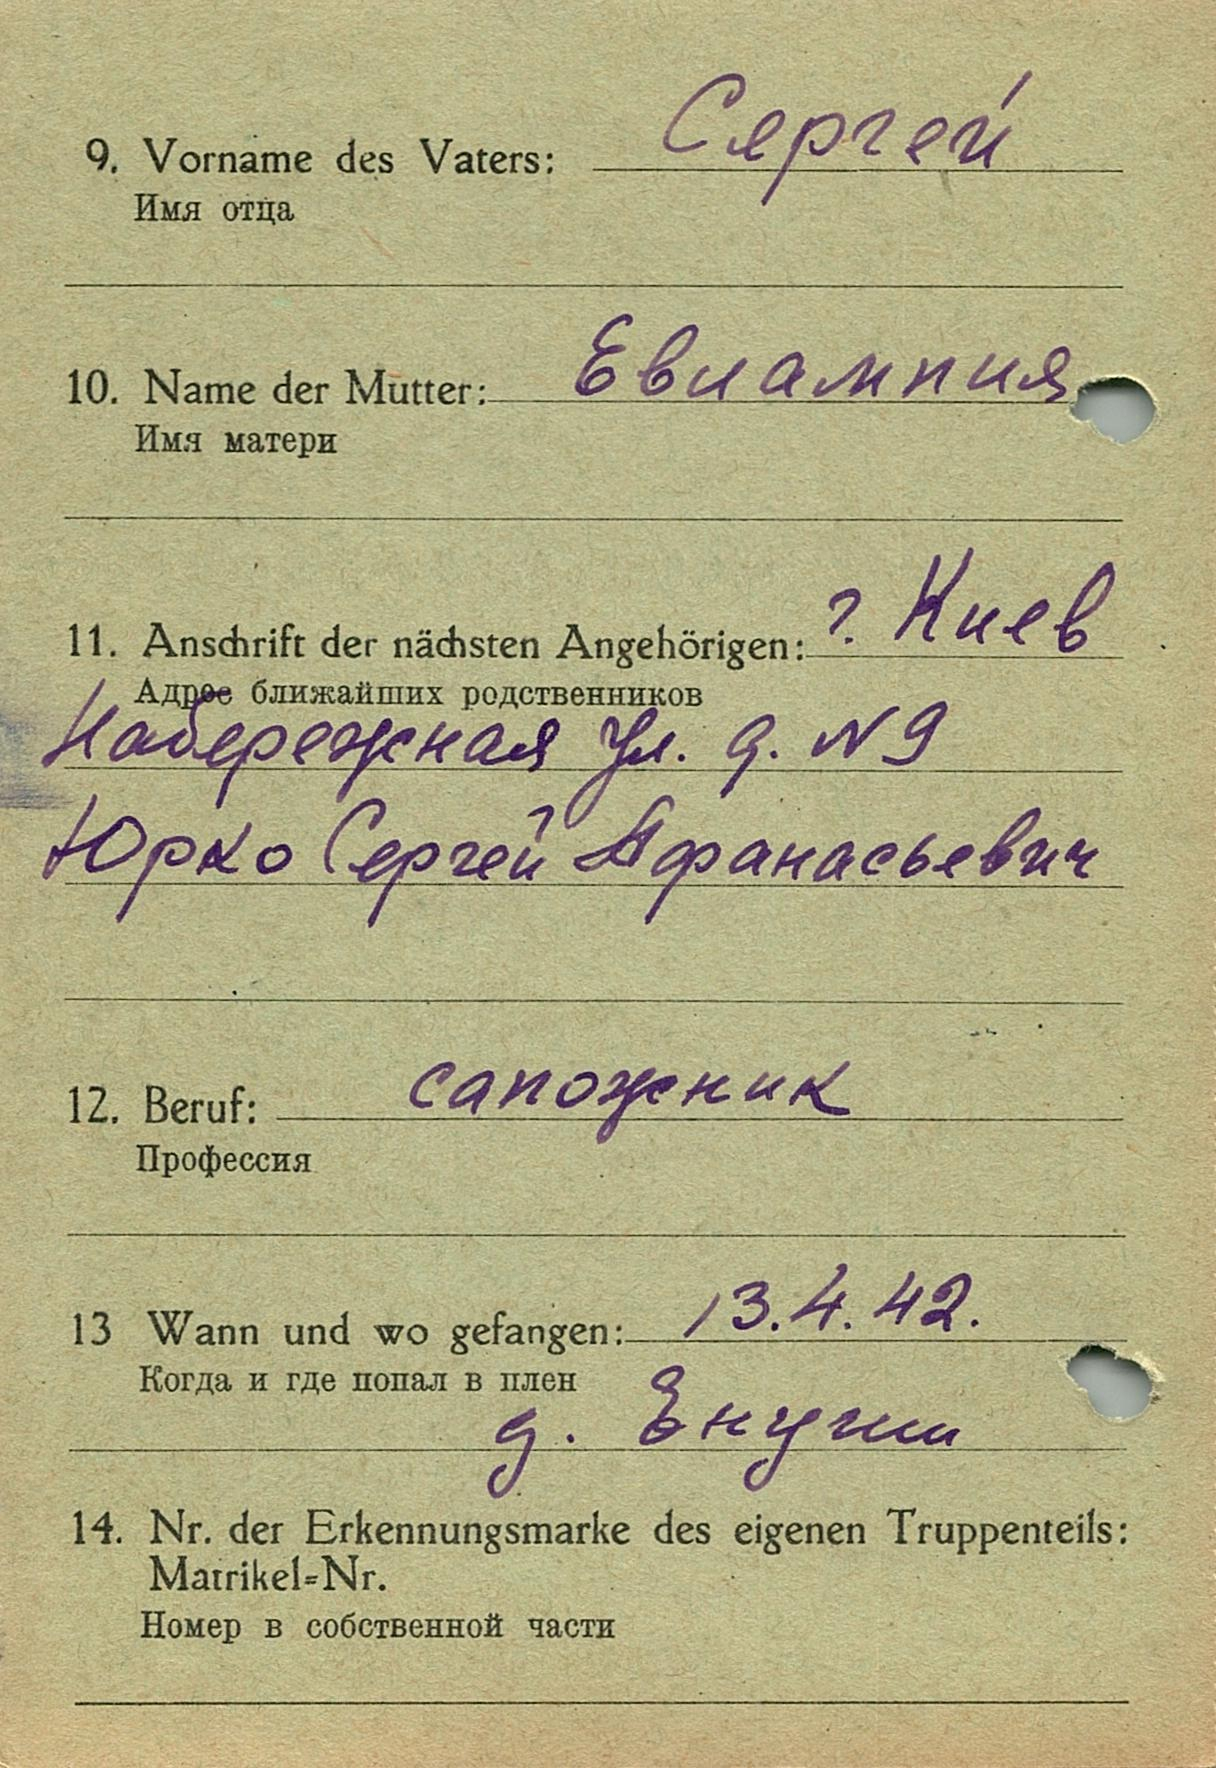 9. Vorname des Vaters: Сергей
Имя отца
10. Name der Mutter: Евлампия
Имя матери
11. Anschrift der nächsten Angehörigen: г. Киев
Адрес ближайших родственников
Набережная ул. д. N 9
Юрко Сергей Афанасьевич
12. Beruf: сапожник
Профессия
13 Wann und wo gefangen: 13.4.42.
Когда и где попал в плен
д.
14. Nr. der Erkennungsmarke des eigenen Truppenteils:
Matrikel=Nr.
Номер в собственной части